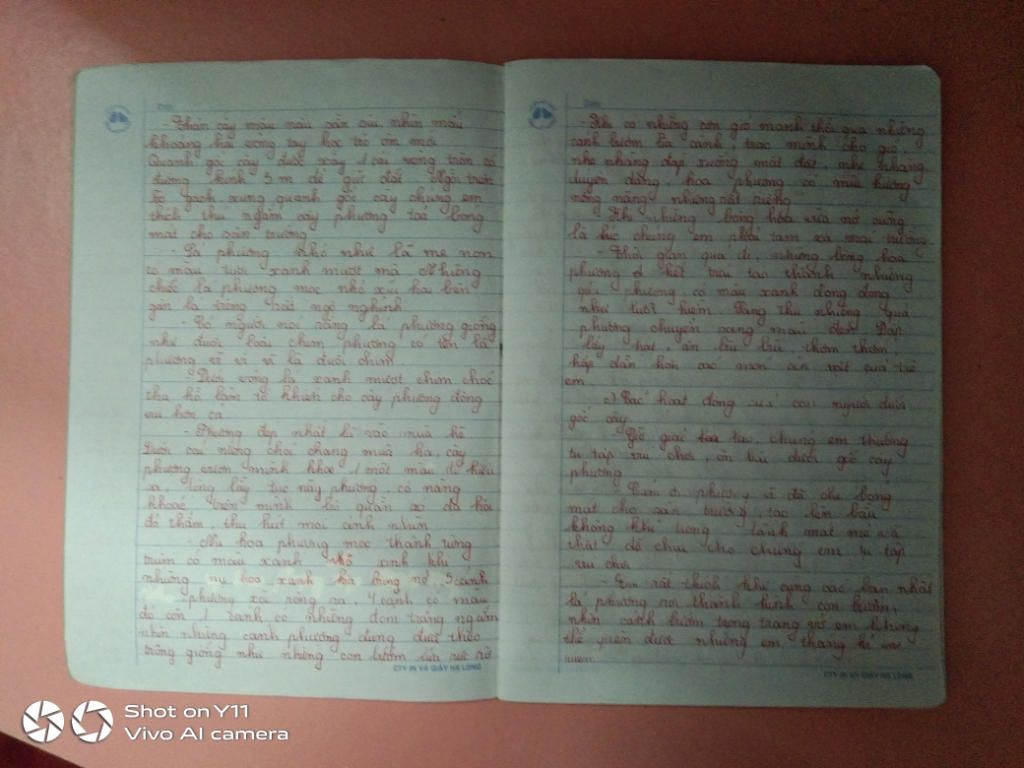 - Thân cây màu nâu sần sùi nhìn mấu
khoảng hai vòng tay học trò ôm mới
Quanh gốc cây được xây 1 cái vòng tròn có
đường kính 5 m để giữ đất. Ngồi trên
bờ gạch xung quanh gốc cây chúng em
thích thú ngắm cây phượng toả bóng
mát cho sân trường
- Lá phượng nhỏ như lá me non
có màu tươi xanh mượt mà Những
chiếc lá phượng mọc nhỏ xíu hai bên
gân lá trông rất ngộ nghĩnh
- Có người nói rằng lá phượng giống
như đuôi loài chim phượng có tên là
phượng vĩ vì vĩ là đuôi chim
Dưới vòng lá xanh mượt chim chóc
thu hồ lặn tổ khiến cho cây phượng đông
vui hơn cả
- Phượng đẹp nhất là vào mùa hè
Dưới cái nắng chói chang mùa hạ, cây
phượng vươn mình khoe 1 một màu đỏ kiêu
sa, lộng lẫy lúc này phượng, cô nàng
khoác trên mình bộ quần áo dạ hội
đỏ thắm, thu hút mọi ánh nhìn
- Nụ hoa phượng mọc thành từng
chùm có màu xanh nhỏ xinh khi
những nụ hoa xanh hé bung nở, 5 cánh
phượng xoè rộng ra, 4 cánh có màu
đỏ còn 1 cánh có những đốm trắng ngắm
nhìn những cánh phượng đung đưa theo
trông giống như những con bướm lửa rực rỡ
- Khi có những cơn gió mạnh thổi qua những
cánh bướm lìa cành, trao mình cho gió
nhẹ nhàng đáp xuống mặt đất, nhẹ nhàng
duyên dáng, hoa phượng có mùi hương
nồng nàng nhưng rất riêng
- Khi những bông hoa vừa nở cũng
là lúc chúng em phải tạm xa mái trường
- Thời gian qua đi, những bông hoa
phượng kết trái tạo thành những
quả phượng có màu xanh dong dỏng
như lưỡi kiếm. Sang thu những quả
phượng chuyển sang màu đen. Đập
lấy hạt, ăn bùi bùi, thơm thơm,
hấp dẫn hơn các món ăn vặt của trẻ
em
c) Các hoạt động của con người dưới
gốc cây
- Giờ giải lao, chúng em thường
tụ tập vui chơi, ôn bài dưới gốc cây
phượng
- phượng vĩ đã che bóng
mát cho sân trường, tạo lên bầu
không khí trong lành mát mẻ và
thật dễ chịu cho chúng em tụ tập
vui chơi
- Em rất thích khi cùng các bạn nhặt
lá phượng rơi thành hình con bướm,
nhìn cánh bướm trong trang vở em không
thể quên được những em tháng kỉ
niệm
CTY IN VÀ GIẤY HẠ LONG
CTY IN VÀ GIẤY HẠ LONG
Shot on Y11
Vivo AI camera